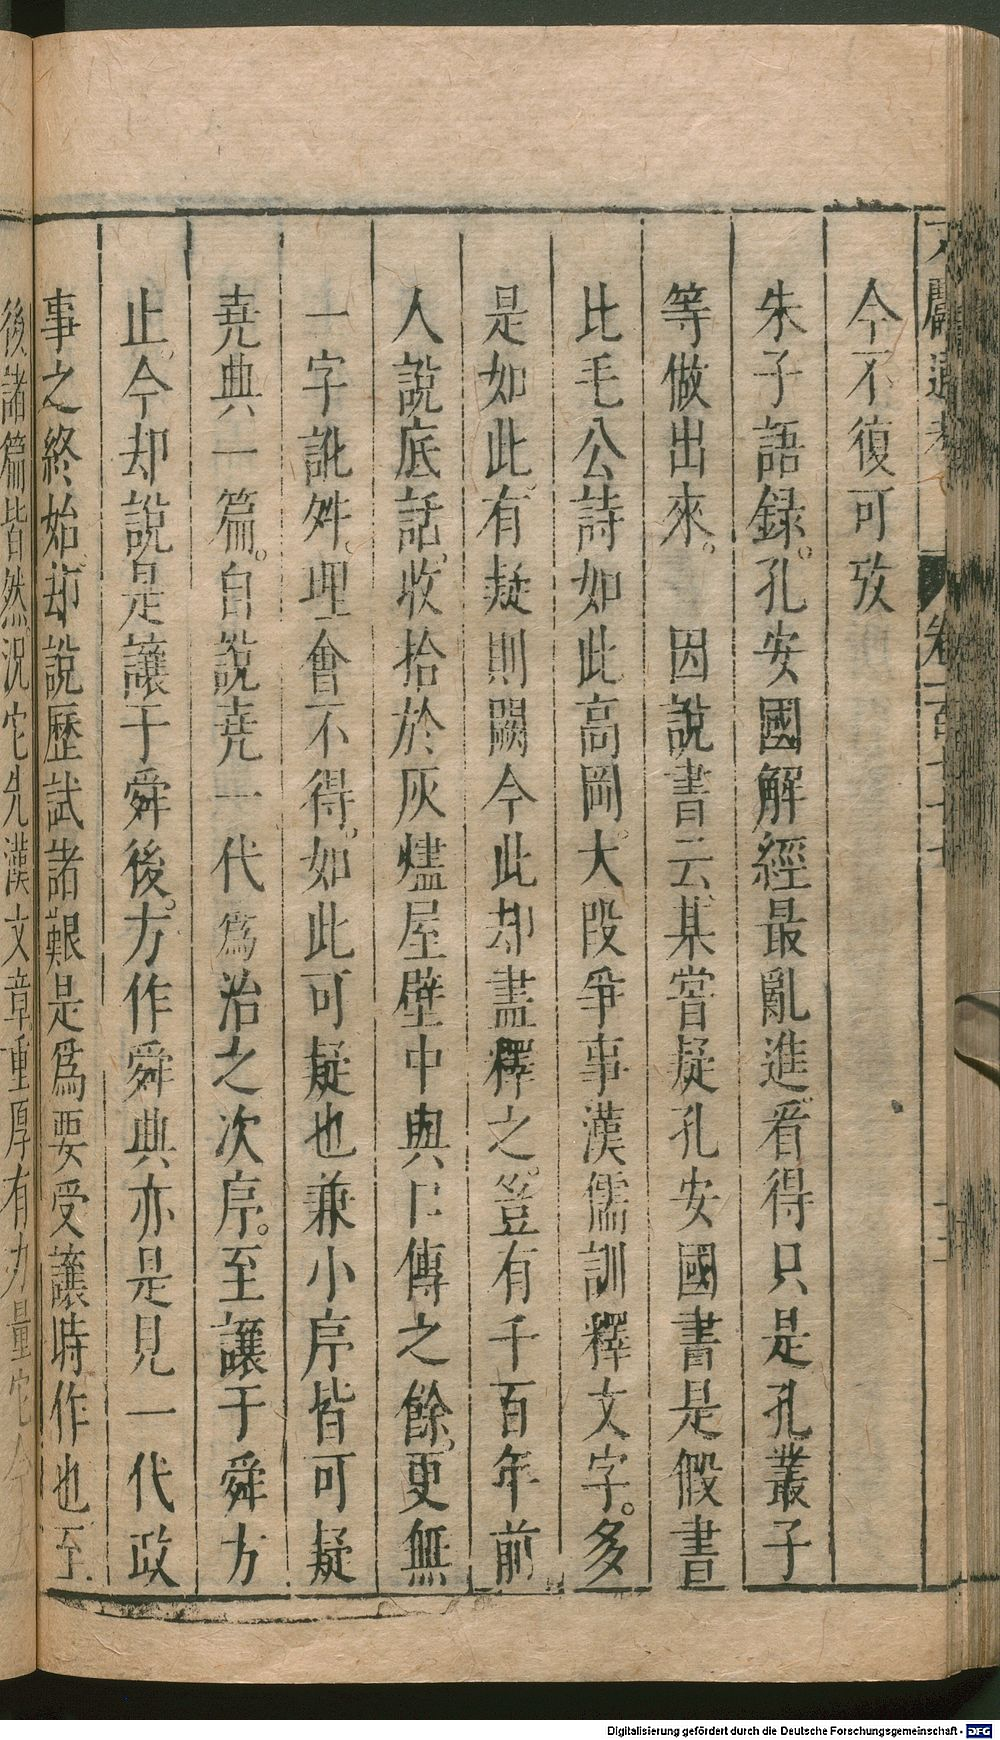 文獻通考 卷一百七十七
今不復可攷
朱子語録。孔安國解經最亂進。看得只是孔叢子
等做出來。 因說書云、某嘗疑孔安國書是假書
比毛公詩如此高岡。大段爭事漢儒訓釋文字。多
是如此。有疑則闕今此却盡釋之。豈有千百年前
人說底話。收拾於灰燼屋壁中與口傳之餘。更無
一字訛舛。理會不得。如此可疑也兼小序皆可疑
堯典一篇。自說堯一代爲治之次序。至讓于舜方
止。今却說是讓于舜後。方作舜典亦是見一代政
事之終始。却說歷試諸艱是爲要受讓時作也至
後諸篇皆然況它先漢文章重厚有力量它今
Digitalisierung gefördert durch die Deutsche Forschungsgemeinschaft - DFG